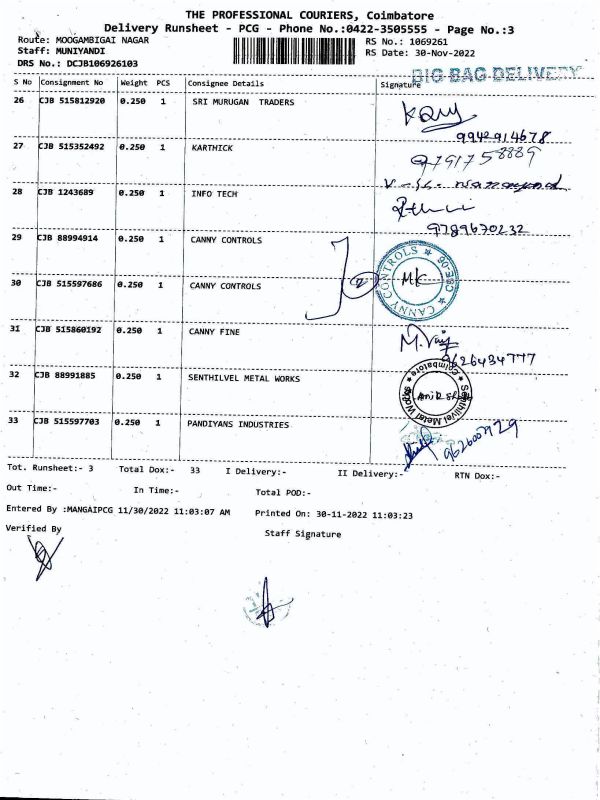 THE PROFESSIONAL COURIERS, Coimbatore
Delivery Runsheet - PCG - Phone No.:0422-3505555 - Page No.:3
Route: MOOGAMBIGAI NAGAR
RS No.: 1069261
Staff: MUNIYANDI
RS Date: 30-Nov-2022
DRS No.: DCJB106926103
BIG BAG DELIVERY
S No Consignment No Weight PCS Consignee Details Signature
26 CJB 515812920 0.250 1 SRI MURUGAN TRADERS
9942914678
27 CJB 515352492 0.250 1 KARTHICK
9791758889
28 CJB 1243689 0.250 1 INFO TECH
9789670232
29 CJB 88994914 0.250 1 CANNY CONTROLS
30 CJB 515597686 0.250 1 CANNY CONTROLS
2
MK
CANNY CONTROLS ★ CBE-06 ★
31 CJB 515860192 0.250 1 CANNY FINE
9626434777
32 CJB 88991885 0.250 1 SENTHILVEL METAL WORKS
Senthilvel Metal Works ★ Coimbatore ★
33 CJB 515597703 0.250 1 PANDIYANS INDUSTRIES
Tot. Runsheet:- 3 Total Dox:- 33 I Delivery:- II Delivery:- RTN Dox:-
Out Time:- In Time:- Total POD:-
Entered By :MANGAIPCG 11/30/2022 11:03:07 AM Printed On: 30-11-2022 11:03:23
Verified By Staff Signature